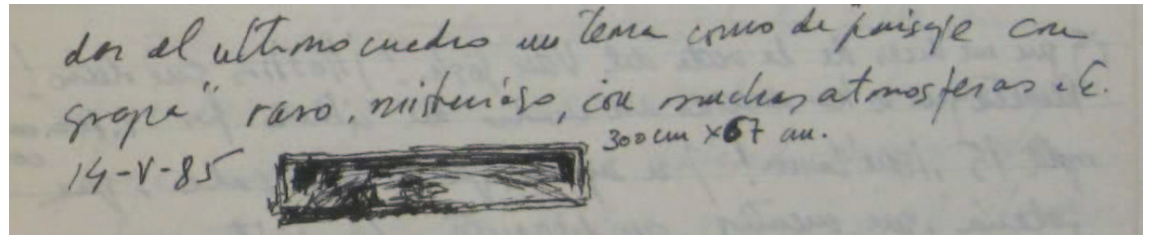 dar al ultimo cuadro un tema como de "paisaje con
grapa" raro, misterioso, con muchas atmosferas. E.
300 cm x 67 cm.
14-V-85